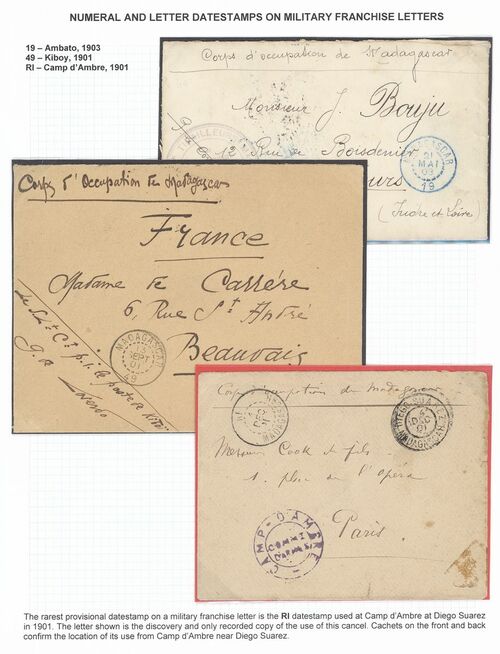 NUMERAL AND LETTER DATESTAMPS ON MILITARY FRANCHISE LETTERS
19 – Ambato, 1903
49 – Kiboy, 1901
RI – Camp d'Ambre, 1901
Corps d'occupation de Madagascar
Monsieur J. Bouju
12 Rue de Boisdenier
Tours
(Indre et Loire)
21
MAI
03
19
Corps d'Occupation de Madagascar
France
Madame de Carrère
6, Rue St André
Beauvais
MADAGASCAR
SEPT
01
49
Corps d'occupation de Madagascar
MADAGASCAR
DIEGO-SUAREZ
DEC
01
MADAGASCAR
Messieurs Cook et fils
1. place de l'opéra
Paris
CAMP-D'AMBRE
The rarest provisional datestamp on a military franchise letter is the RI datestamp used at Camp d'Ambre at Diego Suarez
in 1901. The letter shown is the discovery and only recorded copy of the use of this cancel. Cachets on the front and back
confirm the location of its use from Camp d'Ambre near Diego Suarez.